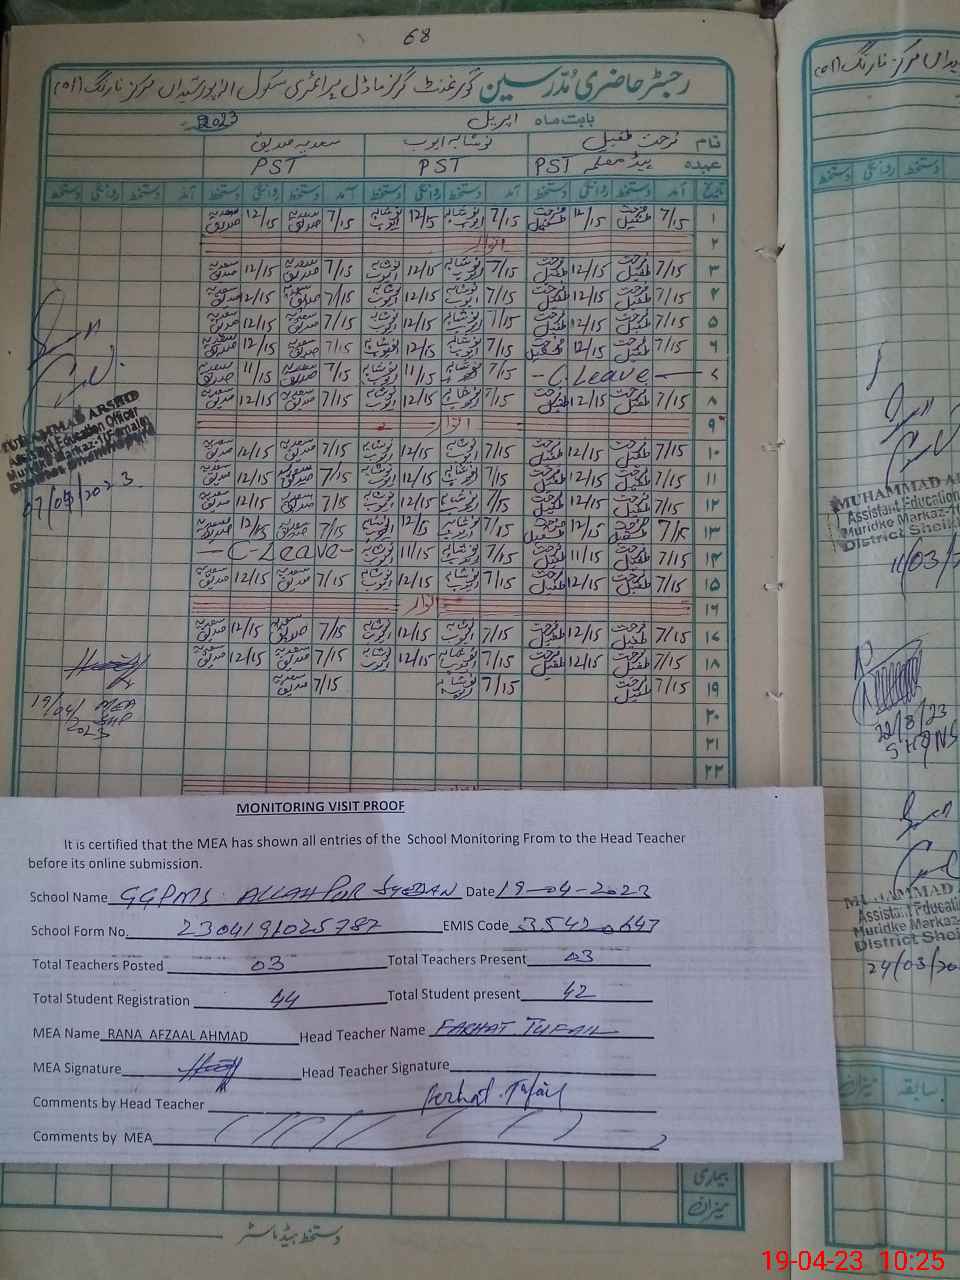 68
رجسٹر حاضری مدرسین گورنمنٹ گرلز ماڈل پرائمری سکول الہ پور سیداں مرکز نارنگ (01)
بابت ماہ اپریل 2023
نام فرحت طفیل نوشابہ ایوب سعدیہ صدیق
عہدہ ہیڈ معلم PST PST PST
تاریخ آمد دستخط روانگی دستخط آمد دستخط روانگی دستخط آمد دستخط روانگی دستخط
۱ 7/15 فرحت طفیل 12/15 فرحت طفیل 7/15 نوشابہ ایوب 12/15 نوشابہ ایوب 7/15 سعدیہ صدیق 12/15 سعدیہ صدیق
۲ اتوار
۳ 7/15 فرحت طفیل 12/15 فرحت طفیل 7/15 نوشابہ ایوب 12/15 نوشابہ ایوب 7/15 سعدیہ صدیق 12/15 سعدیہ صدیق
۴ 7/15 فرحت طفیل 12/15 فرحت طفیل 7/15 نوشابہ ایوب 12/15 نوشابہ ایوب 7/15 سعدیہ صدیق 12/15 سعدیہ صدیق
۵ 7/15 فرحت طفیل 12/15 فرحت طفیل 7/15 نوشابہ ایوب 12/15 نوشابہ ایوب 7/15 سعدیہ صدیق 12/15 سعدیہ صدیق
۶ 7/15 فرحت طفیل 12/15 فرحت طفیل 7/15 نوشابہ ایوب 12/15 نوشابہ ایوب 7/15 سعدیہ صدیق 12/15 سعدیہ صدیق
۷ -C.Leave- 7/15 نوشابہ ایوب 11/15 نوشابہ ایوب 7/15 سعدیہ صدیق 11/15 سعدیہ صدیق
۸ 7/15 فرحت طفیل 12/15 فرحت طفیل 7/15 نوشابہ ایوب 12/15 نوشابہ ایوب 7/15 سعدیہ صدیق 12/15 سعدیہ صدیق
۹ اتوار
۱۰ 7/15 فرحت طفیل 12/15 فرحت طفیل 7/15 نوشابہ ایوب 12/15 نوشابہ ایوب 7/15 سعدیہ صدیق 12/15 سعدیہ صدیق
۱۱ 7/15 فرحت طفیل 12/15 فرحت طفیل 7/15 نوشابہ ایوب 12/15 نوشابہ ایوب 7/15 سعدیہ صدیق 12/15 سعدیہ صدیق
۱۲ 7/15 فرحت طفیل 12/15 فرحت طفیل 7/15 نوشابہ ایوب 12/15 نوشابہ ایوب 7/15 سعدیہ صدیق 12/15 سعدیہ صدیق
۱۳ 7/15 فرحت طفیل 12/15 فرحت طفیل 7/15 نوشابہ ایوب 12/15 نوشابہ ایوب 7/15 سعدیہ صدیق 12/15 سعدیہ صدیق
۱۴ 7/15 فرحت طفیل 11/15 فرحت طفیل 7/15 نوشابہ ایوب 11/15 نوشابہ ایوب -C-Leave-
۱۵ 7/15 فرحت طفیل 12/15 فرحت طفیل 7/15 نوشابہ ایوب 12/15 نوشابہ ایوب 7/15 سعدیہ صدیق 12/15 سعدیہ صدیق
۱۶ اتوار
۱۷ 7/15 فرحت طفیل 12/15 فرحت طفیل 7/15 نوشابہ ایوب 12/15 نوشابہ ایوب 7/15 سعدیہ صدیق 12/15 سعدیہ صدیق
۱۸ 7/15 فرحت طفیل 12/15 فرحت طفیل 7/15 نوشابہ ایوب 12/15 نوشابہ ایوب 7/15 سعدیہ صدیق 12/15 سعدیہ صدیق
۱۹ 7/15 فرحت طفیل 7/15 نوشابہ ایوب 7/15 سعدیہ صدیق
۲۰
۲۱
۲۲
MUHAMMAD ARSHID
Assistant Education Officer
Muridke Markaz-1(Female)
19/04/2023 MEA SHP
MONITORING VISIT PROOF
It is certified that the MEA has shown all entries of the School Monitoring From to the Head Teacher
before its online submission.
School Name GGPMS ALLAH PUR SYEDAN Date 19-04-2023
School Form No. 2304191025787 EMIS Code 35420647
Total Teachers Posted 03 Total Teachers Present 03
Total Student Registration 44 Total Student present 42
MEA Name RANA AFZAAL AHMAD Head Teacher Name FARHAT TUFAIL
MEA Signature Head Teacher Signature
Comments by Head Teacher Farhat Tufail
Comments by MEA
بیماری
میزان
دستخط ہیڈ ماسٹر
MUHAMMAD AR
Assistant Education
Muridke Markaz-1
District Sheik
11/03/2
22/8/23
MUHAMMAD
Assistant Educati
Muridke Markaz
District Shei
24/03/20
سابقہ میزان
19-04-23 10:25